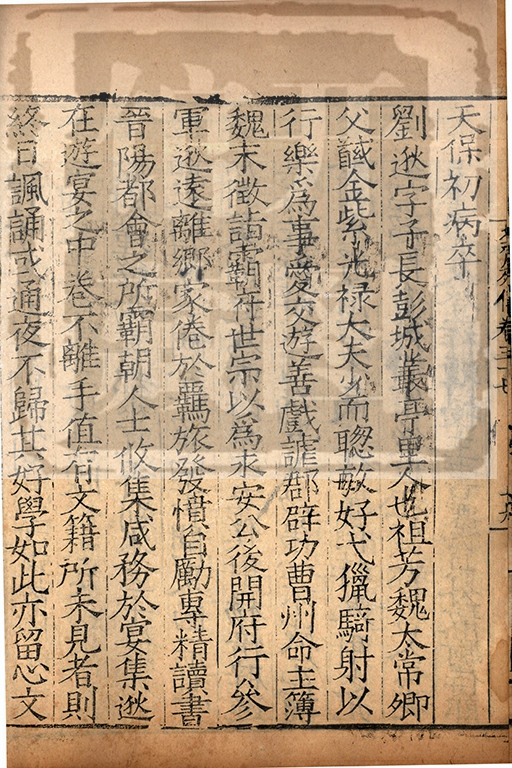 天保初病卒
劉逖字子長彭城叢亭里人也祖芳魏太常卿
父戫金紫光祿大夫少而聦敏好弋獵騎射以
行樂爲事愛交遊善戲謔郡辟功曹州命主簿
魏末徵詣霸府世宗以爲永安公後開府行參
軍逖遠離鄉家倦於羈旅發憤自勵專精讀書
晉陽都會之所霸朝人士攸集咸務於宴集逖
在遊宴之中卷不離手值有文籍所未見者則
終日諷誦或通夜不歸其好學如此亦留心文